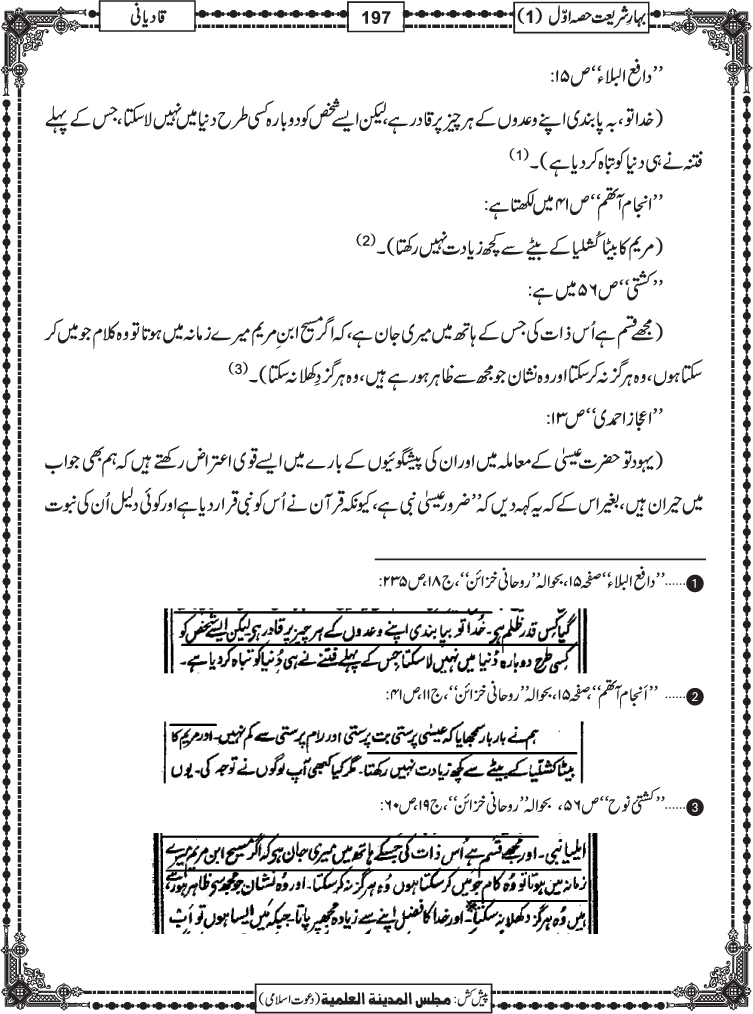 بہارِشریعت حصہ اوّل (1)
197
قادیانی
’’دافع البلاء‘‘ ص۱۵:
(خدا تو، بہ پابندی اپنے وعدوں کے ہر چیز پر قادر ہے، لیکن ایسے شخص کو دوبارہ کسی طرح دنیا میں نہیں لاسکتا، جس کے پہلے
فتنہ نے ہی دنیا کو تباہ کر دیا ہے)۔ (1)
’’انجام آتھم‘‘ ص ۴۱ میں لکھتا ہے:
(مریم کا بیٹا کُشلیا کے بیٹے سے کچھ زیادت نہیں رکھتا)۔ (2)
’’کشتی‘‘ ص ۵۶ میں ہے:
(مجھے قسم ہے اُس ذات کی جس کے ہاتھ میں میری جان ہے، کہ اگر مسیح ابنِ مریم میرے زمانہ میں ہوتا تو وہ کلام جو میں کر
سکتا ہوں، وہ ہرگز نہ کرسکتا اور وہ نشان جو مجھ سے ظاہر ہور ہے ہیں، وہ ہرگز دِکھلا نہ سکتا)۔ (3)
’’اعجاز احمدی‘‘ ص۱۳:
(یہود تو حضرت عیسیٰ کے معاملہ میں اور ان کی پیشگوئیوں کے بارے میں ایسے قوی اعتراض رکھتے ہیں کہ ہم بھی جواب
میں حیران ہیں، بغیر اس کے کہ یہ کہہ دیں کہ ’’ضرور عیسیٰ نبی ہے، کیونکہ قرآن نے اُس کو نبی قرار دیا ہے اور کوئی دلیل اُن کی نبوت
1 ......’’دافع البلاء‘‘ صفحہ ۱۵، بحوالہ ’’روحانی خزائن‘‘، ج۱۸، ص۲۳۵:
گیا کس قدر ظلم ہے۔ خُدا تو بپابندی اپنے وعدوں کے ہر چیز پر قادر ہے لیکن ایسے شخص کو
کسی طرح دوبارہ دُنیا میں نہیں لا سکتا جس کے پہلے فتنے نے ہی دُنیا کو تباہ کر دیا ہے۔
2 ...... ’’انجام آتھم‘‘، صفحہ ۱۵، بحوالہ ’’روحانی خزائن‘‘، ج۱۱، ص۴۱:
ہم نے بار بار سمجھایا کہ عیسیٰ پرستی بت پرستی اور رام پرستی سے کم نہیں۔ اور مریم کا
بیٹا کشلیا کے بیٹے سے کچھ زیادت نہیں رکھتا۔ مگر کیا کبھی آپ لوگوں نے توجہ کی۔ یوں
3 ......’’کشتی نوح‘‘ ص۵۶، بحوالہ ’’روحانی خزائن‘‘، ج۱۹، ص۶۰:
ایلیا نبی۔ اور مجھے قسم ہے اُس ذات کی جسکے ہاتھ میں میری جان ہے کہ اگر مسیح ابن مریم میرے
زمانہ میں ہوتا تو وُہ کام جو میں کر سکتا ہوں وُہ ہرگز نہ کر سکتا۔ اور وُہ نشان جو مجھ سے ظاہر ہو رہے
ہیں وُہ ہرگز دکھلا نہ سکتا۔ اور خدا کا فضل اپنے سے زیادہ مجھ پر پاتا۔ جبکہ میں ایسا ہوں تو اب
پیش کش: مجلس المدینۃ العلمیۃ (دعوت اسلامی)